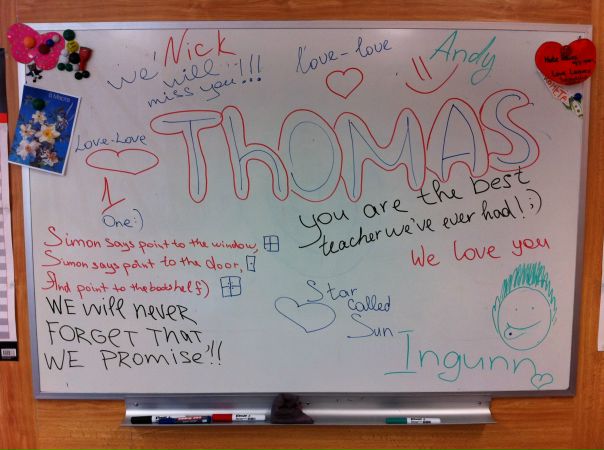 Nick
We will
miss you!!!
Love-love
Andy
Love-Love
THOMAS
1
One:)
you are the best
teacher we've ever had! ;)
We love you
Simon says point to the window,
Simon says point to the door,
And point to the bookshelf)
WE WILL never
FORGET THAT
WE PROMISE!!!
Star
called
Sun
Ingunn